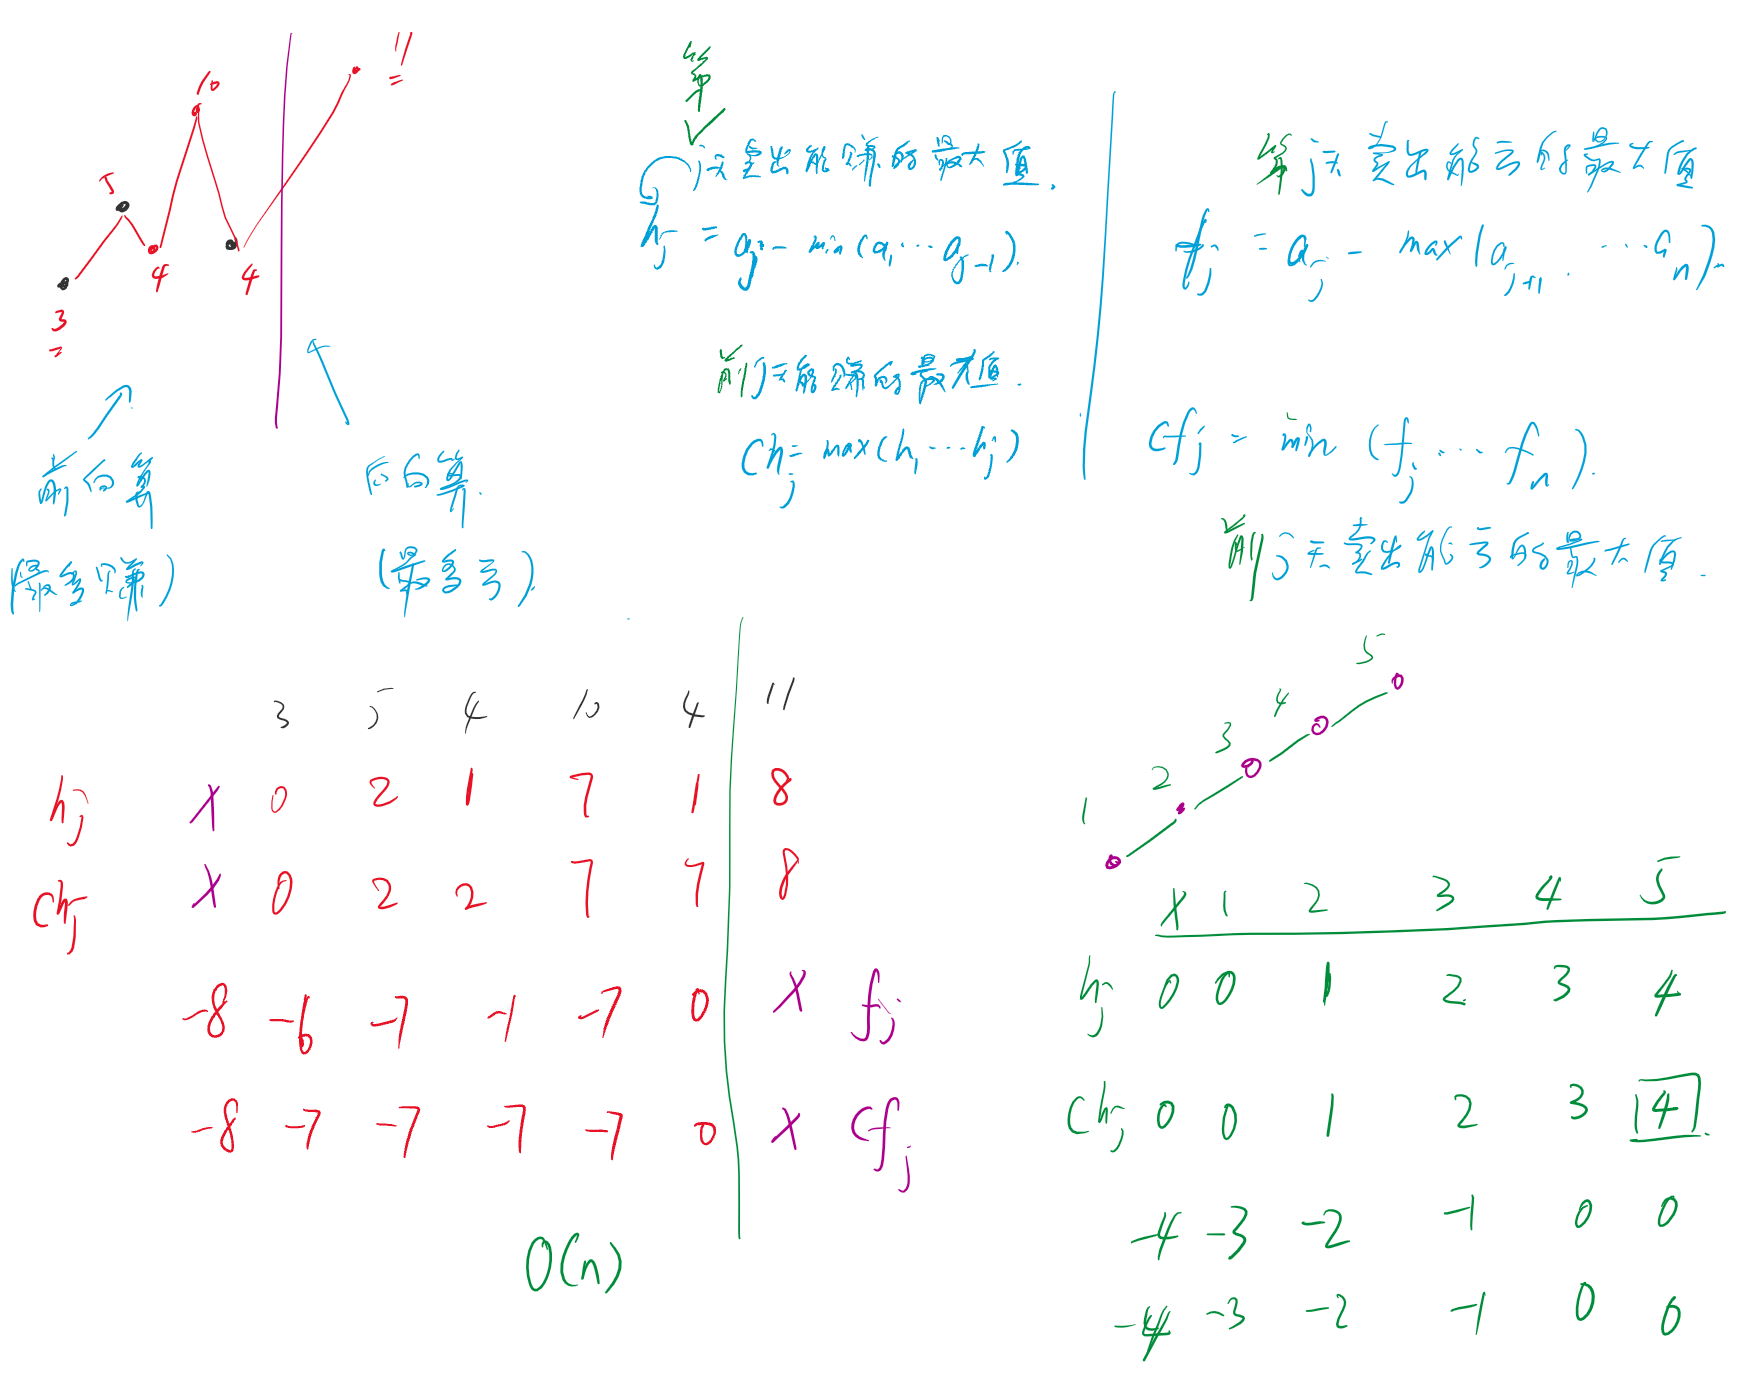 3
5
4
10
4
11
前向算
(最多赚)
后向算.
(最多亏).
第
j天卖出能赚的最大值.
hj = aj - min(a1 ... aj-1).
前j天能赚的最大值.
chj = max(h1 ... hj)
第j天卖出能亏的最大值
fj = aj - max(aj+1, ... an).
cfj = min (fj ... fn).
前j天卖出能亏的最大值.
3 5 4 10 4 11
hj X 0 2 1 7 1 8
chj X 0 2 2 7 7 8
-8 -6 -7 -1 -7 0 X fj
-8 -7 -7 -7 -7 0 X cfj
O(n)
1 2 3 4 5
X 1 2 3 4 5
hj 0 0 1 2 3 4
chj 0 0 1 2 3 4
-4 -3 -2 -1 0 0
-4 -3 -2 -1 0 0